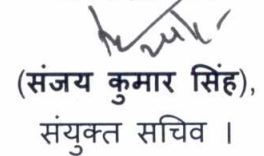 (संजय कुमार सिंह),
संयुक्त सचिव ।